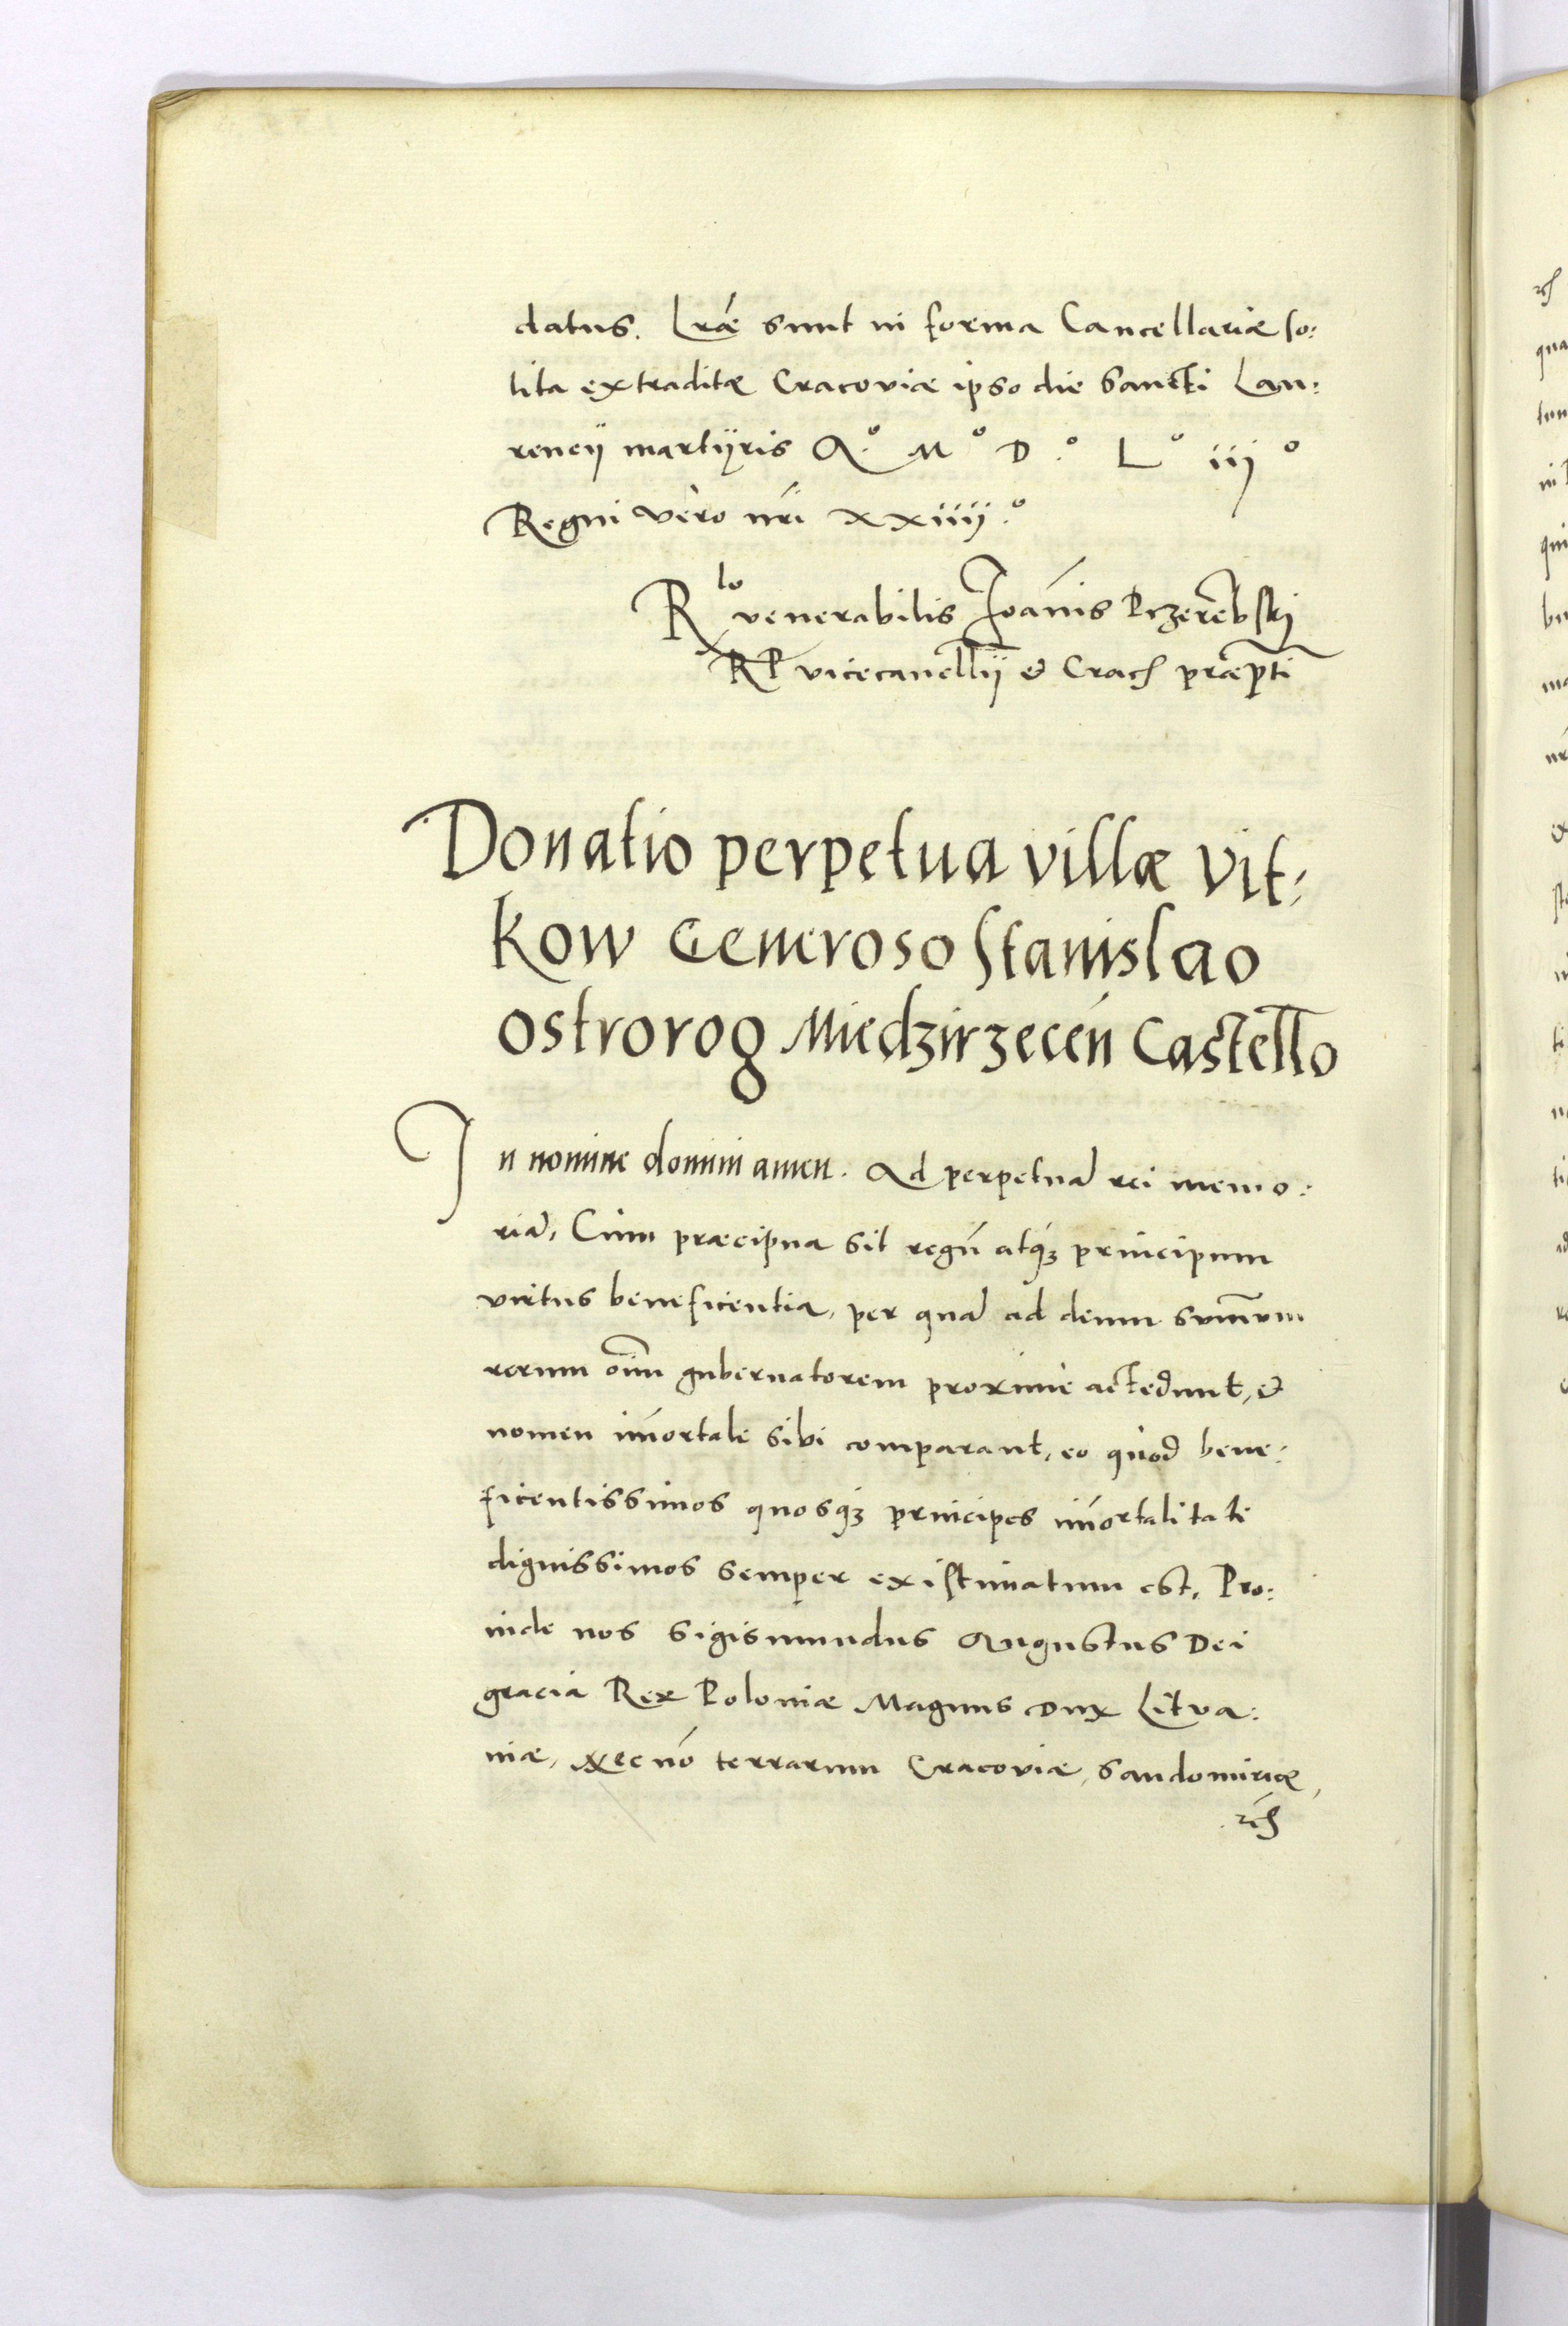 datus. Lræ sunt in forma Cancellariæ so:
lita extraditæ Cracoviæ ipso die Sancti Lau:
rencÿ martÿris A.º Mº D.º Lº iijº
Regni vero nri xxiiij.º
Rlo venerabilis Joānis Przerēbskj
RP vicecancellÿ & Crac præpti
Donatio perpetua villæ Vit:
kow Generoso Stanislao
ostrorog Miedzirzecēn Castello
In nomine domini amen. Ad perpetuā rei memo:
riā, Cum præcipua sit regū atq3 principum
virtus beneficentia, per quā ad deum summum
rerum oīm gubernatorem proxime accedunt, &
nomen īmortale sibi comparant, eo quod bene:
ficentissimos quosq3 principes īmortalitate
dignissimos semper existimatum est, Pro:
inde nos Sigismundus Augustus Dei
gracia Rex Poloniæ Magnus Dux Litva:
niæ, Nec nō terrarum Cracoviæ, Sandomiriæ,